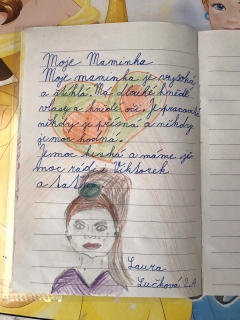 Moje Maminka
Moje maminka je vysoká
a štíhlá. Má dlouhé hnědé
vlasy a hnědé oči. Je pracovitá
někdy je přísná a někdy
je moc hodná.
Je moc hezká a máme ji
moc rádi i Viktorek
a táta
Laura
Lučková 2.A